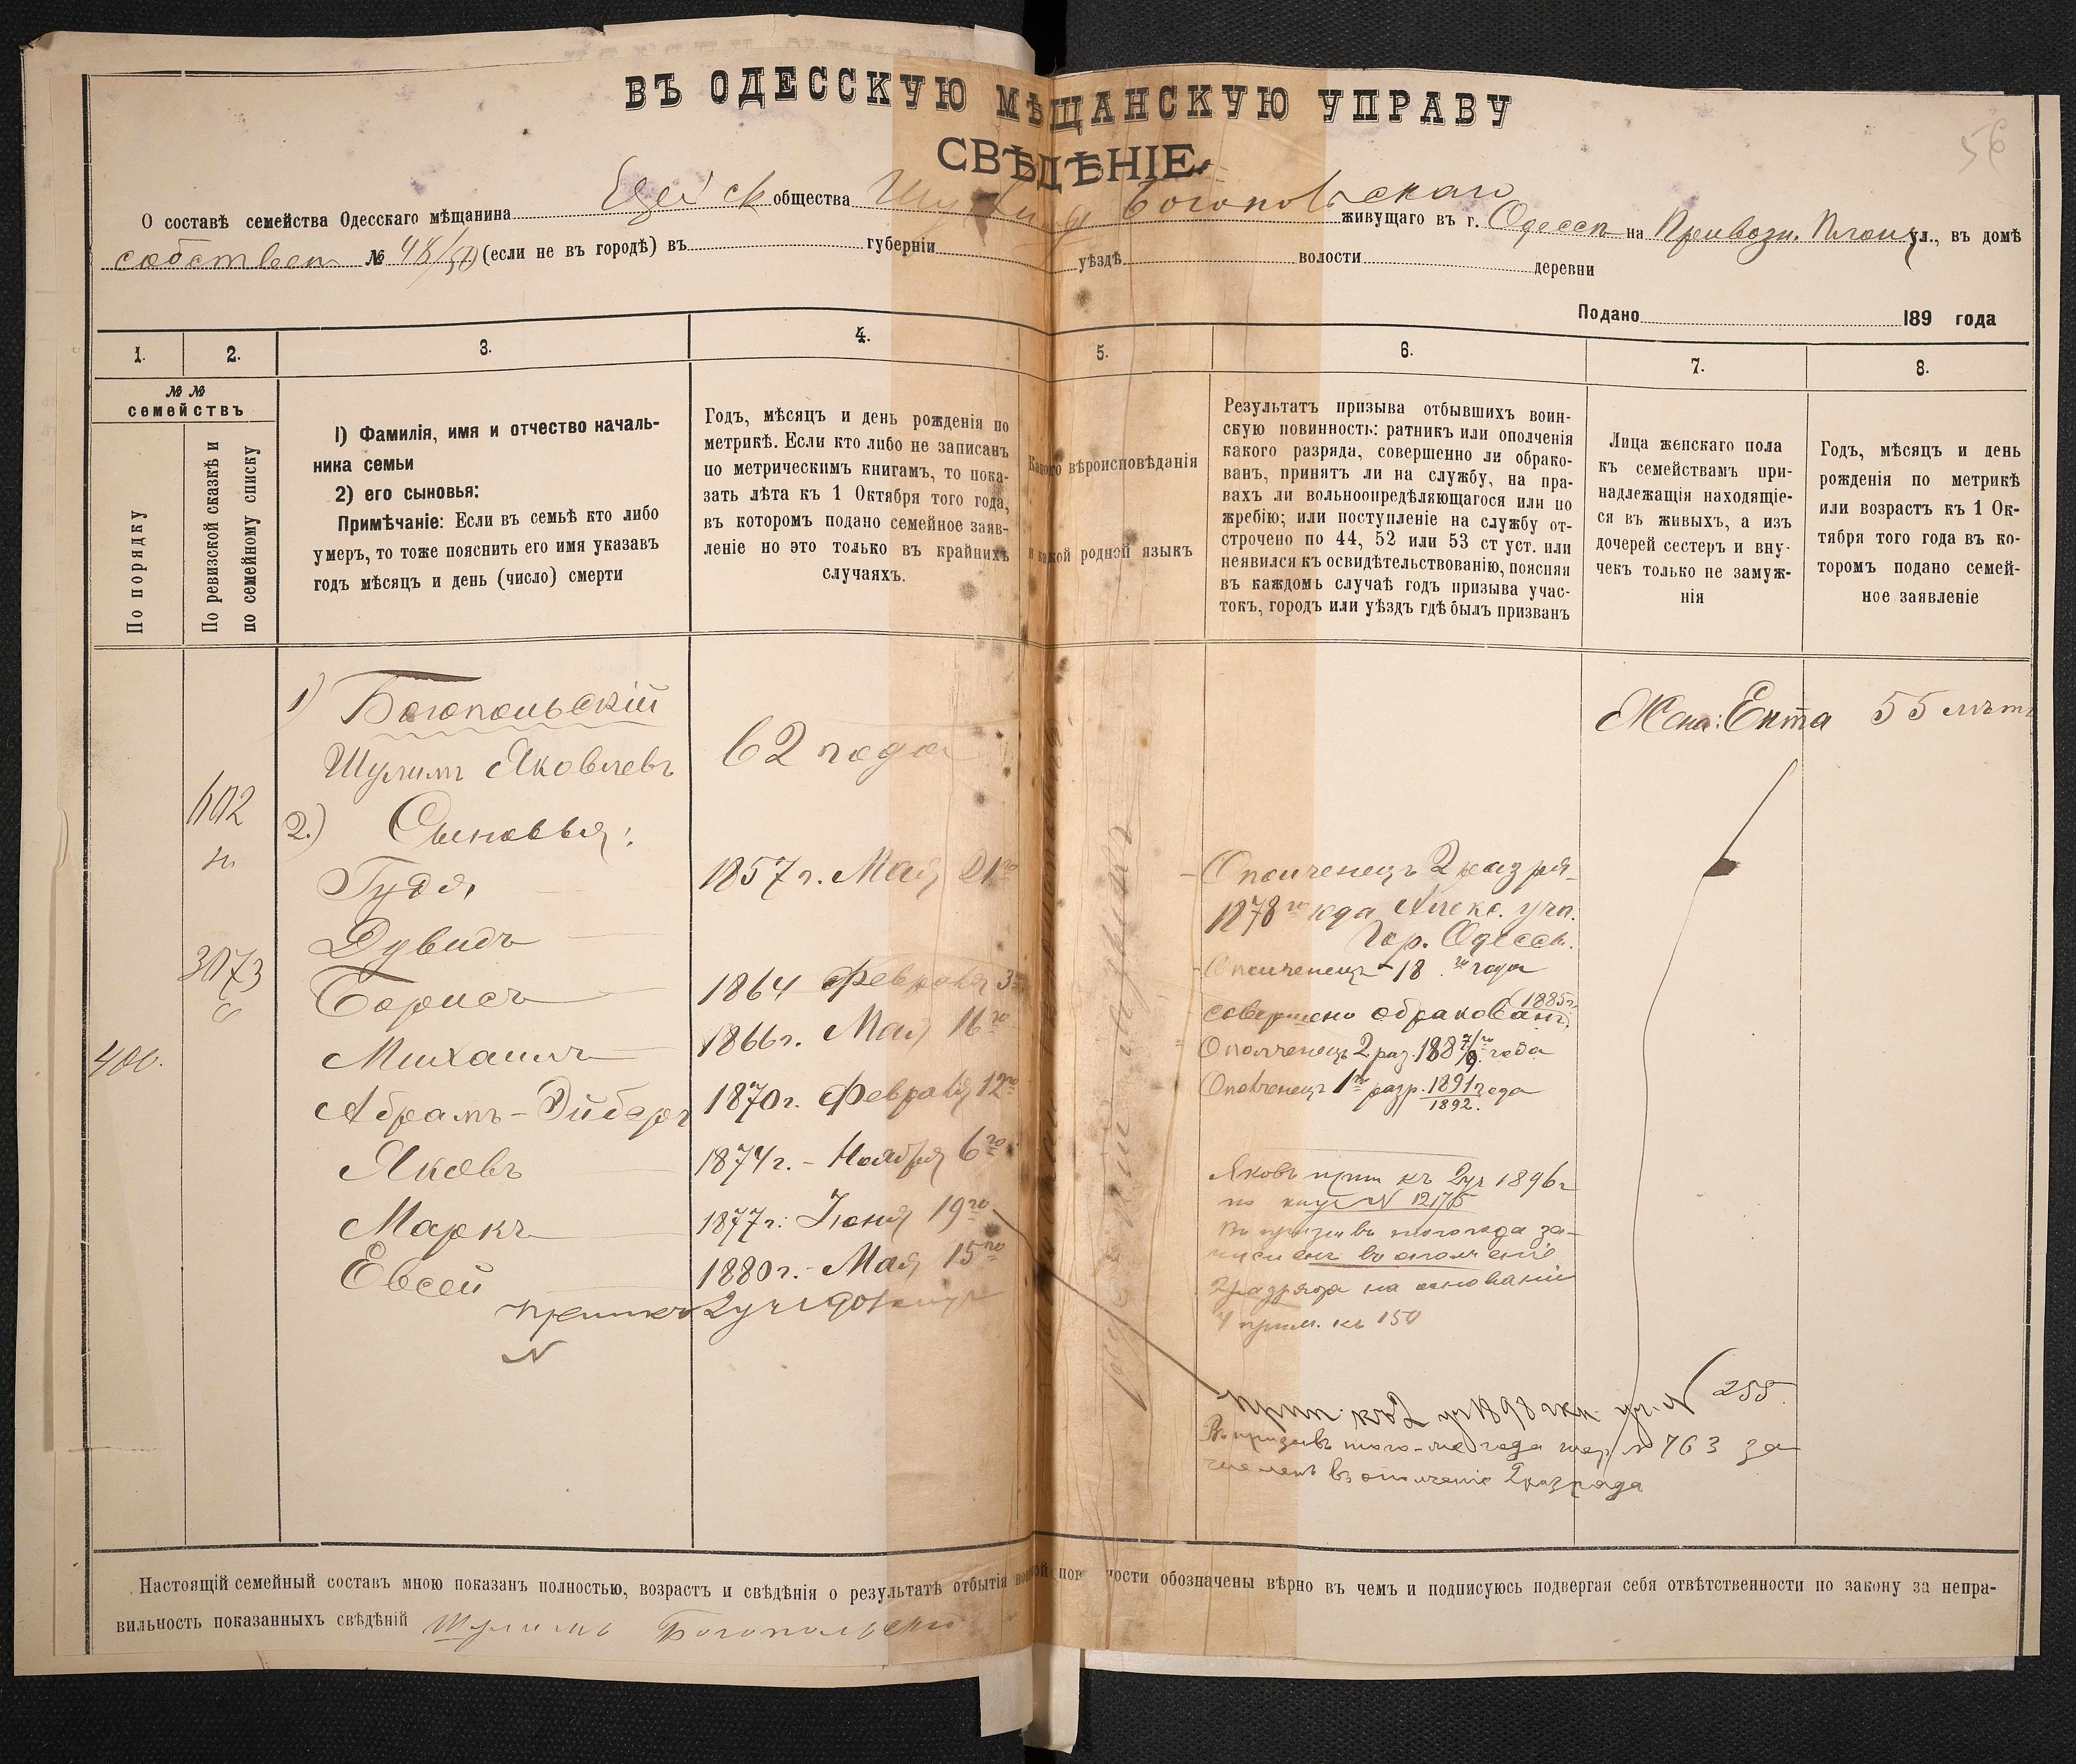 ВЪ ОДЕССКУЮ МѢЩАНСКУЮ УПРАВУ
СВѢДѢНІЕ
56
О составѣ семейства Одесскаго мѣщанина общества Богопольскаго живущаго въ г. Одессѣ на Привозн. Площ ул., въ домѣ
собствен № 48/50 (если не въ городѣ) въ губерніи уѣздѣ волости деревни
Подано 189 года
1.
2.
3.
4.
5.
6.
7.
8.
№ №
семействъ
По порядку
По ревизской сказкѣ и
по семейному списку
1) Фамилія, имя и отчество началь-
ника семьи
2) его сыновья:
Примѣчаніе: Если въ семьѣ кто либо
умеръ, то тоже пояснить его имя указавъ
годъ мѣсяцъ и день (число) смерти
Годъ, мѣсяцъ и день рожденія по
метрикѣ. Если кто либо не записанъ
по метрическимъ книгамъ, то пока-
зать лѣта къ 1 Октября того года,
въ которомъ подано семейное заяв-
леніе но это только въ крайнихъ
случаяхъ.
Какого вѣроисповѣданія
и какой родной языкъ
Результатъ призыва отбывшихъ воин-
скую повинность: ратникъ или ополченія
какого разряда, совершенно ли обрако-
ванъ, принятъ ли на службу, на пра-
вахъ ли вольноопредѣляющагося или по
жребію; или поступленіе на службу от-
строчено по 44, 52 или 53 ст уст. или
неявился къ освидѣтельствованію, поясняя
въ каждомъ случаѣ годъ призыва учас-
токъ, городъ или уѣздъ гдѣ былъ призванъ
Лица женскаго пола
къ семействамъ при-
надлежащія находящіе-
ся въ живыхъ, а изъ
дочерей сестеръ и вну-
чекъ только не замуж-
нія
Годъ, мѣсяцъ и день
рожденія по метрикѣ
или возрастъ къ 1 Ок-
тября того года въ ко-
торомъ подано семей-
ное заявленіе
1) Богопольскій
Шулимъ Яковлевъ
62 года
Жена: Ента 55 лѣтъ
602
2.) Сыновья:
Гудя,
1857 г. Мая 21го
Ополченецъ 2 разря-
1878го года Алекс. уч.
Гор. Одесса.
Дувидъ
Ополченецъ 18 го года
3073
Борисъ
1864 Февраля 3
совершено обракованъ (1885 г.)
400.
Михаилъ
1866 г. Мая 16го
Ополченецъ 2 раз. 1887/8 го года
Абрамъ-
1870 г. Февраля 12го
Ополченецъ 1го разр. 1891 года
1892.
Яковъ
1874 г. - Ноября 6го
Яковъ прип къ 2 уч 1896 г
по № 12175
Въ призывъ того года за-
численъ въ ополченіе
2 разряда на основаніи
4 прим. къ 150
Маркъ
1877 г. Іюня 19го
Евсей
1880 г. - Мая 15го
2 уч 1901
N
прип. къ 2 уч 1898 г N 255
Въ призывъ того-же года жер N 763 за
численъ въ ополченіе 2 разряда
Настоящій семейный составъ мною показанъ полностью, возрастъ и свѣдѣнія о результатѣ отбытія воинской повинности обозначены вѣрно въ чемъ и подписуюсь подвергая себя отвѣтственности по закону за непра-
вильность показанныхъ свѣдѣній Шулимъ Богопольскій